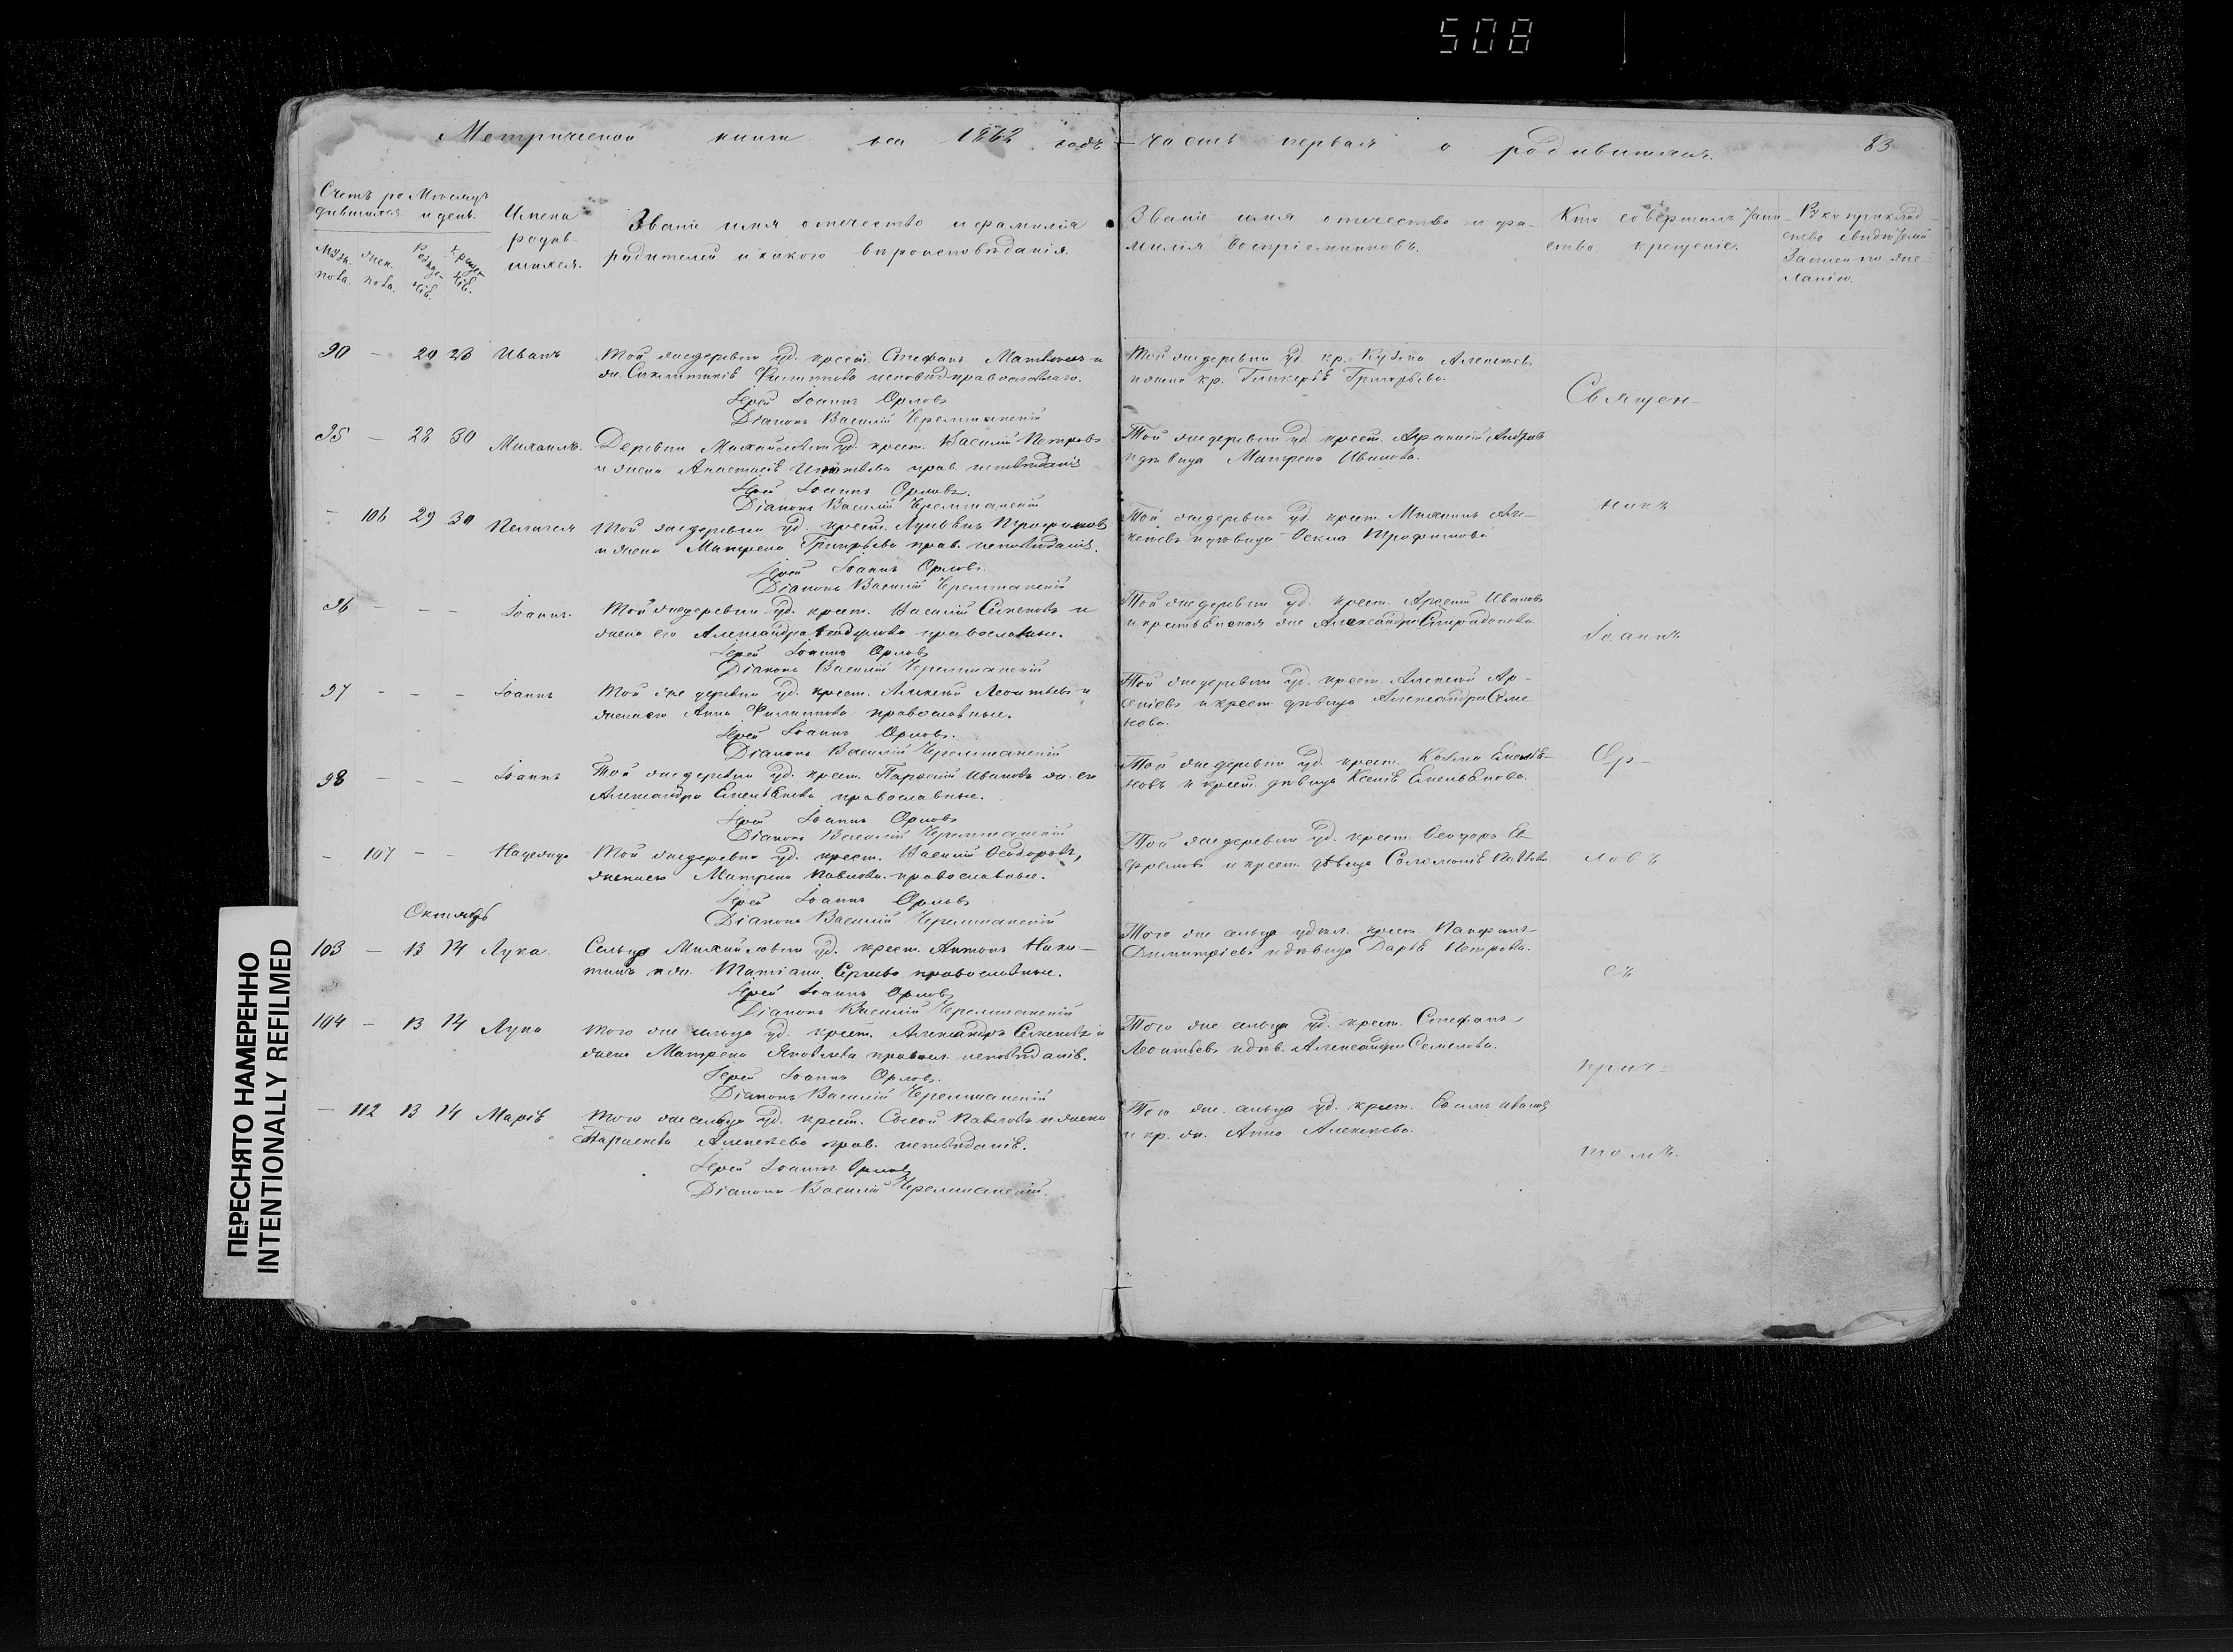 508
Метрической книги на 1862 годъ
часть первая о родившихся.
83
Счетъ ро Мѣсяцъ
дившихся и день.
Имена
родив-
шихся.
Званіе имя отечество и фамилія
родителей и какого вѣроисповѣданія.
Званіе имя отечество и фа-
милія воспріемниковъ.
Кто совершалъ таин-
ство крещенія.
Рукоприклад-
ство свидѣтелей
записи по же-
ланію.
Муж. Жен. Рожде Креще
пола. пола. нія. нія.
90 — 20 23 Иванъ Той же деревни уд. крест. Стефанъ и
ж. Филиппова исповѣд. православнаго.
Іерей Іоаннъ Орловъ
Діаконъ Василій Черемшанскій
Той же деревни уд. кр. Кузма Алексѣев.
кр. Григорьева.
Священ-
95 — 28 30 Михаилъ. Деревни уд. крест. Василій Петровъ
и жена Анастасія прав. исповѣданія
Іерей Іоаннъ Орловъ.
Діаконъ Василій Черемшанскій
Той же деревни уд. крест. Андреевъ
и дѣвица Матрена Иванова.
— 106 29 30 Пелагея Той же деревни уд. крест. Трофимовъ
и жена Матрена Григорьева прав. исповѣданія.
Іерей Іоаннъ Орловъ.
Діаконъ Василій Черемшанскій
Той же деревни уд. крест. Михаилъ Але-
ксѣевъ и дѣвица Ѳекла Трофимова
никъ
96 — — — Іоаннъ. Той же деревни уд. крест. Василій Семеновъ и
жена его Александра Ѳеодорова православные.
Іерей Іоаннъ Орловъ
Діаконъ Василій Черемшанскій
Той же деревни уд. крест. Арсеній Ивановъ
и крестьянская же Александра Спиридонова.
Іоаннъ
97 — — — Іоаннъ Той же деревни уд. крест. Алексѣй Леонтьевъ и
жена его Анна Филиппова православные.
Іерей Іоаннъ Орловъ.
Діаконъ Василій Черемшанскій
Той же деревни уд. крест. Алексѣй Ар-
сеніевъ и крест. дѣвица Александра Семе
нова.
98 — — — Іоаннъ Той же деревни уд. крест. Ивановъ ж. его
Александра Емельянова православные.
Іерей Іоаннъ Орловъ
Діаконъ Василій Черемшанскій
Той же деревни уд. крест. Козма Емелья-
новъ и крест. дѣвица Ксенія Емельянова.
Ор-
— 107 — — Надежда Той же деревни уд. крест. Василій Ѳеодоровъ,
жена его Матрена Павлова православные.
Іерей Іоаннъ Орловъ
Діаконъ Василій Черемшанскій
Той же деревни уд. крест. Ѳеодоръ Е-
фремовъ и крест. дѣвица Соломонія Павлова.
ловъ
Октябрь
103 — 13 14 Лука. Сельца уд. крест. Антонъ Ники-
тинъ и ж. Сергѣева православные.
Іерей Іоаннъ Орловъ
Діаконъ Василій Черемшанскій
Того же сельца удѣл. крест. Панфилъ
Димитріевъ и дѣвица Дарья Петрова.
съ
104 — 13 14 Лука Того же сельца уд. крест. Александръ Семеновъ и
жена Матрена Яковлева правосл. исповѣданія.
Іерей Іоаннъ Орловъ.
Діаконъ Василій Черемшанскій
Того же сельца уд. крест. Стефанъ
Леонтьевъ и дѣв. Александра Семенова.
прич-
— 112 13 14 Марія Того же сельца уд. крест. Павловъ и жена
Параскева Алексѣева прав. исповѣданія.
Іерей Іоаннъ Орловъ
Діаконъ Василій Черемшанскій.
Того же сельца уд. крест.
и кр. ж. Анна Алексѣева.
томъ.
ПЕРЕСНЯТО НАМЕРЕННО
INTENTIONALLY REFILMED